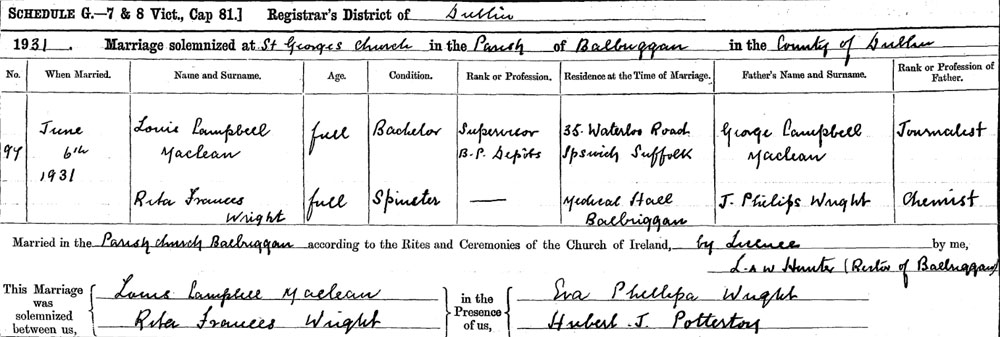 SCHEDULE G.—7 & 8 Vict., Cap 81.] Registrar's District of Dublin
1931. Marriage solemnized at St Georges Church in the Parish of Balbriggan in the County of Dublin
No. When Married. Name and Surname. Age. Condition. Rank or Profession. Residence at the Time of Marriage. Father's Name and Surname. Rank or Profession of Father.
97 June 6th 1931 Louis Campbell Maclean full Bachelor Supervisor B.P. Depôts 35 Waterloo Road Ipswich Suffolk George Campbell Maclean Journalist
Rita Frances Wright full Spinster — Medical Hall Balbriggan J. Philips Wright Chemist
Married in the Parish Church Balbriggan according to the Rites and Ceremonies of the Church of Ireland, by Licence by me,
L. A W Hunter (Rector of Balbriggan)
This Marriage was solemnized between us, { Louis Campbell Maclean
Rita Frances Wright } in the Presence of us, { Eva Phellipa Wright
Hubert J. Potterton